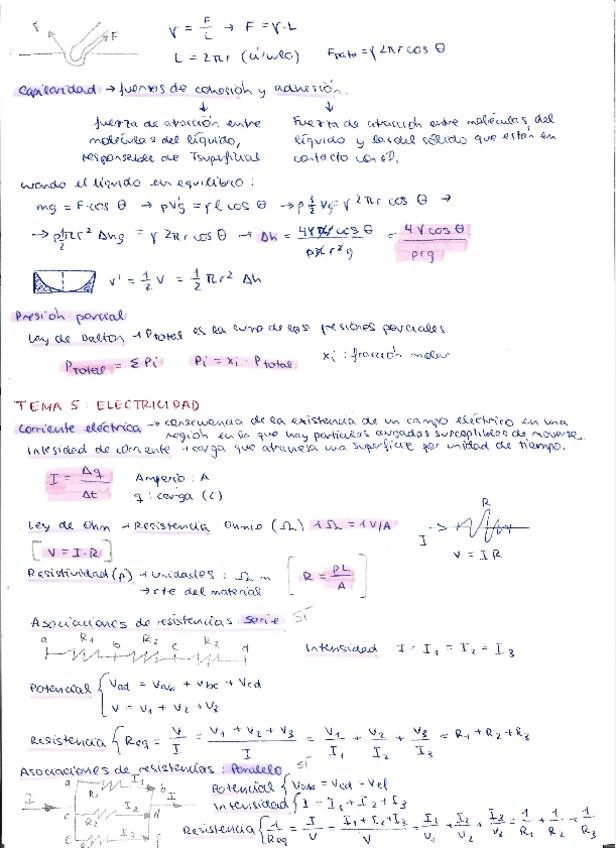 γ = F/L → F = γ·L
F
L = 2πr (círculo) F = γ2πr cos θ
Capilaridad → fuerzas de cohesión y adhesión.
fuerza de atracción entre moléculas del líquido, responsable de Tsuperficial
Fuerza de atracción entre moléculas del líquido y las del sólido que están en contacto con él.
cuando el líquido en equilibrio:
mg = F·cos θ → ρV'g = γL cos θ → ρ 1/2 Vg = γ 2πr cos θ →
→ ρ 1/2 πr² Δhg = γ 2πr cos θ → Δh = 4γπr cos θ / ρπr²g = 4γ cos θ / ρrg
V' = 1/2 V = 1/2 πr² Δh
Presión parcial
Ley de Dalton → Ptotal es la suma de las presiones parciales.
Ptotal = Σ Pi Pi = xi · Ptotal xi : fracción molar
TEMA 5: ELECTRICIDAD
Corriente eléctrica → consecuencia de la existencia de un campo eléctrico en una
región en la que hay partículas cargadas susceptibles de moverse.
Intesidad de corriente → carga que atraviesa una superficie por unidad de tiempo.
I = Δq/Δt Amperio: A
q: carga (C)
Ley de Ohm → Resistencia Ohmio (Ω) 1Ω = 1V/A
R
I →
V = IR
[V = I·R]
Resistividad (ρ) → unidades: Ω m [R = ρL/A]
→ cte del material
Asociaciones de resistencias serie SÍ
a R1 b R2 c R2 d
Intensidad I = I1 = I2 = I3
Potencial { Vad = Vab + Vbc + Vcd
V = V1 + V2 + V3
Resistencia { Req = V/I = V1 + V2 + V3 / I = V1/I1 + V2/I2 + V3/I3 = R1 + R2 + R3
Asociaciones de resistencias: Paralelo SÍ
a R1 I1 b
I c R2 I2 d I
e I3 f
Potencial { Vab = Vcd = Vef
Intensidad { I = I1 + I2 + I3
Resistencia { 1/Req = I/V = I1 + I2 + I3 / V = I1/V1 + I2/V2 + I3/V3 = 1/R1 + 1/R2 + 1/R3